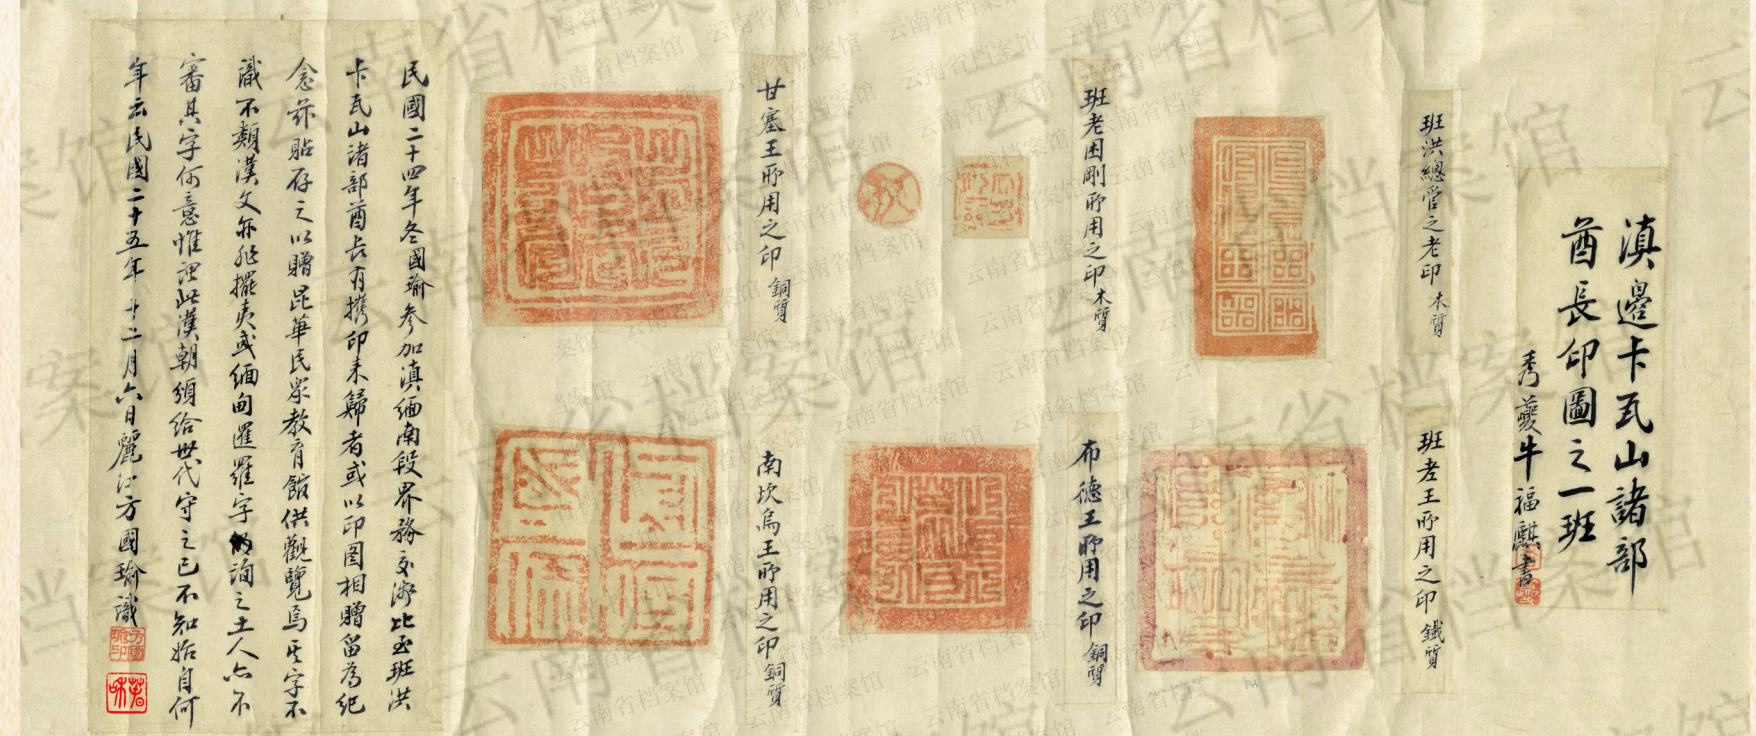 滇邊卡瓦山諸部
酋長印圖之一班
秀夔牛福麒書
班洪總管之老印 木質
班老王所用之印 鐵質
班老困剛所用之印 木質
布德王所用之印 銅質
甘塞王所用之印 銅質
南坎烏王所用之印 銅質
民國二十四年冬國瑜參加滇緬南段界務交涉比至班洪
卡瓦山諸部酋長有攜印来歸者或以印図相贈留為紀
念茲貼存之以贈昆華民眾教育館供觀覽焉其字不
識不類漢文亦非擺夷或緬甸暹羅字詢之土人亦不
審其字何意惟謂此漢朝頒給世代守之已不知始自何
年云民國二十五年十二月六日麗江方國瑜識
云南省档案馆